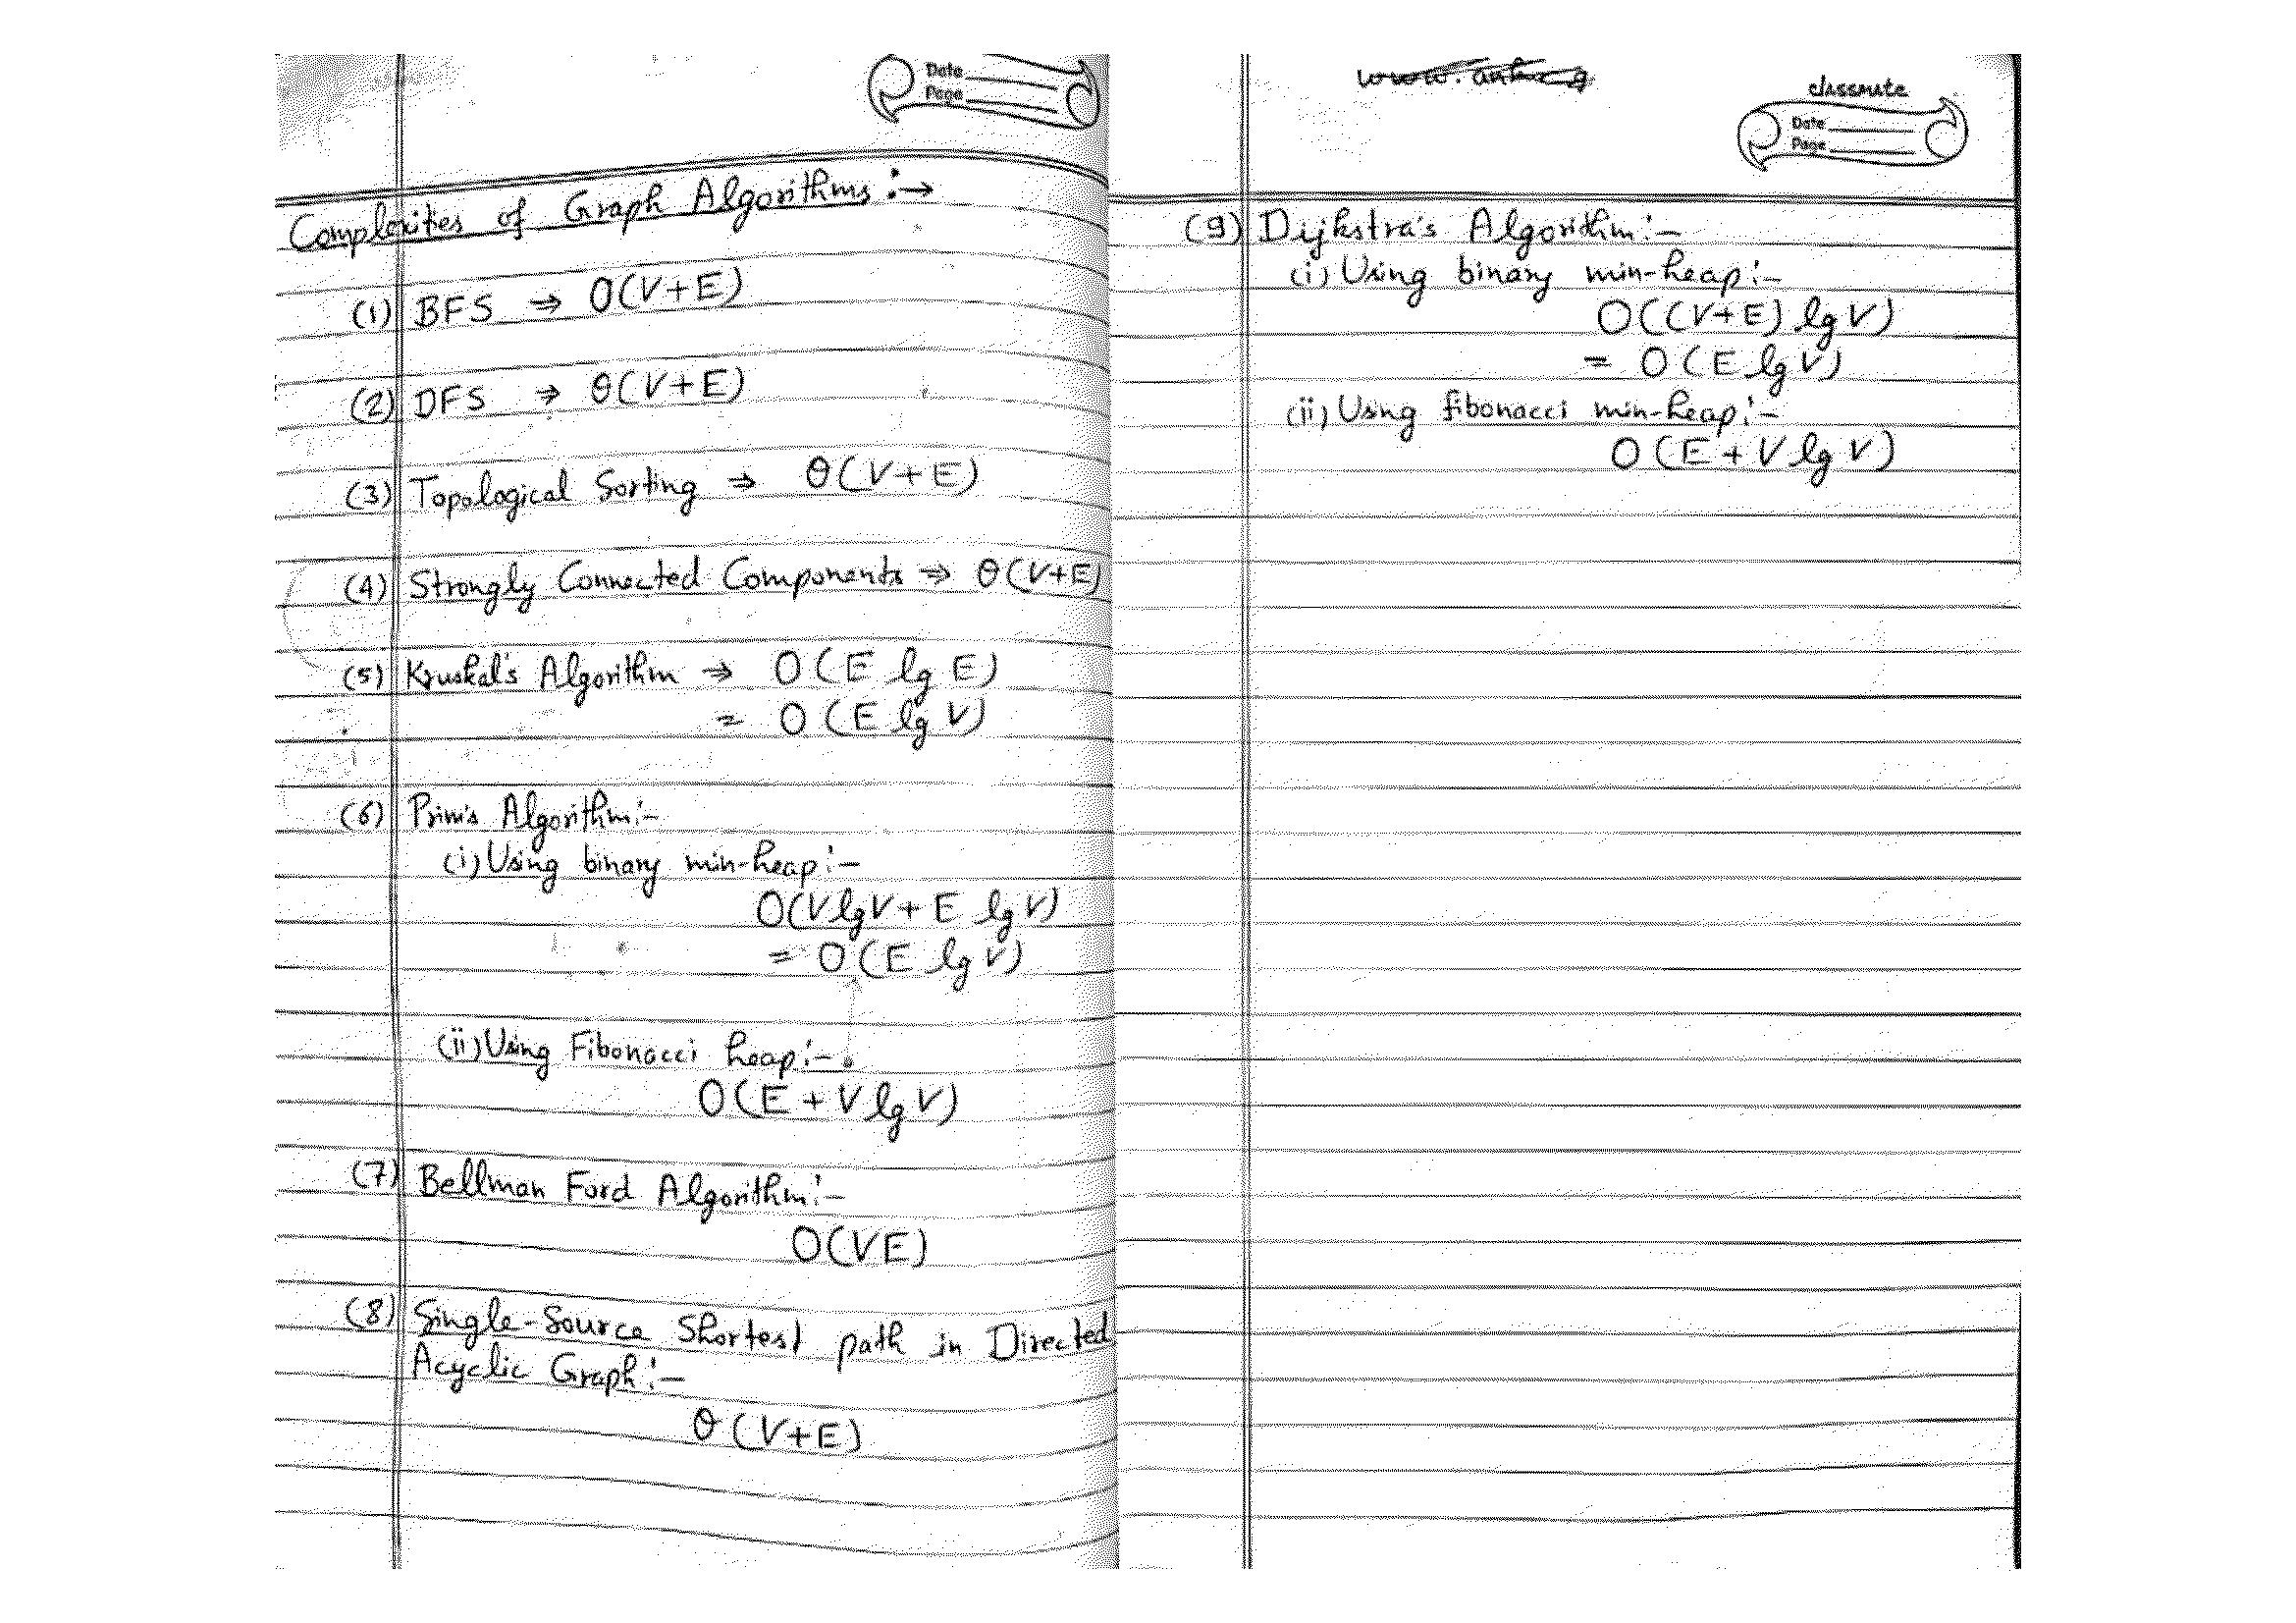 Date
Page
Complexities of Graph Algorithms :→
(1) BFS ⇒ O(V+E)
(2) DFS ⇒ θ(V+E)
(3) Topological Sorting ⇒ θ(V+E)
(4) Strongly Connected Components ⇒ θ(V+E)
(5) Kruskal's Algorithm ⇒ O(E lg E)
= O(E lg V)
(6) Prim's Algorithm:-
(i) Using binary min-heap:-
O(V lg V + E lg V)
= O(E lg V)
(ii) Using Fibonacci heap:-
O(E + V lg V)
(7) Bellman Ford Algorithm:-
O(VE)
(8) Single-Source Shortest path in Directed
Acyclic Graph:-
θ(V+E)
classmate
Date
Page
(9) Dijkstra's Algorithm:-
(i) Using binary min-heap:-
O((V+E) lg V)
= O(E lg V)
(ii) Using fibonacci min-heap:-
O(E + V lg V)